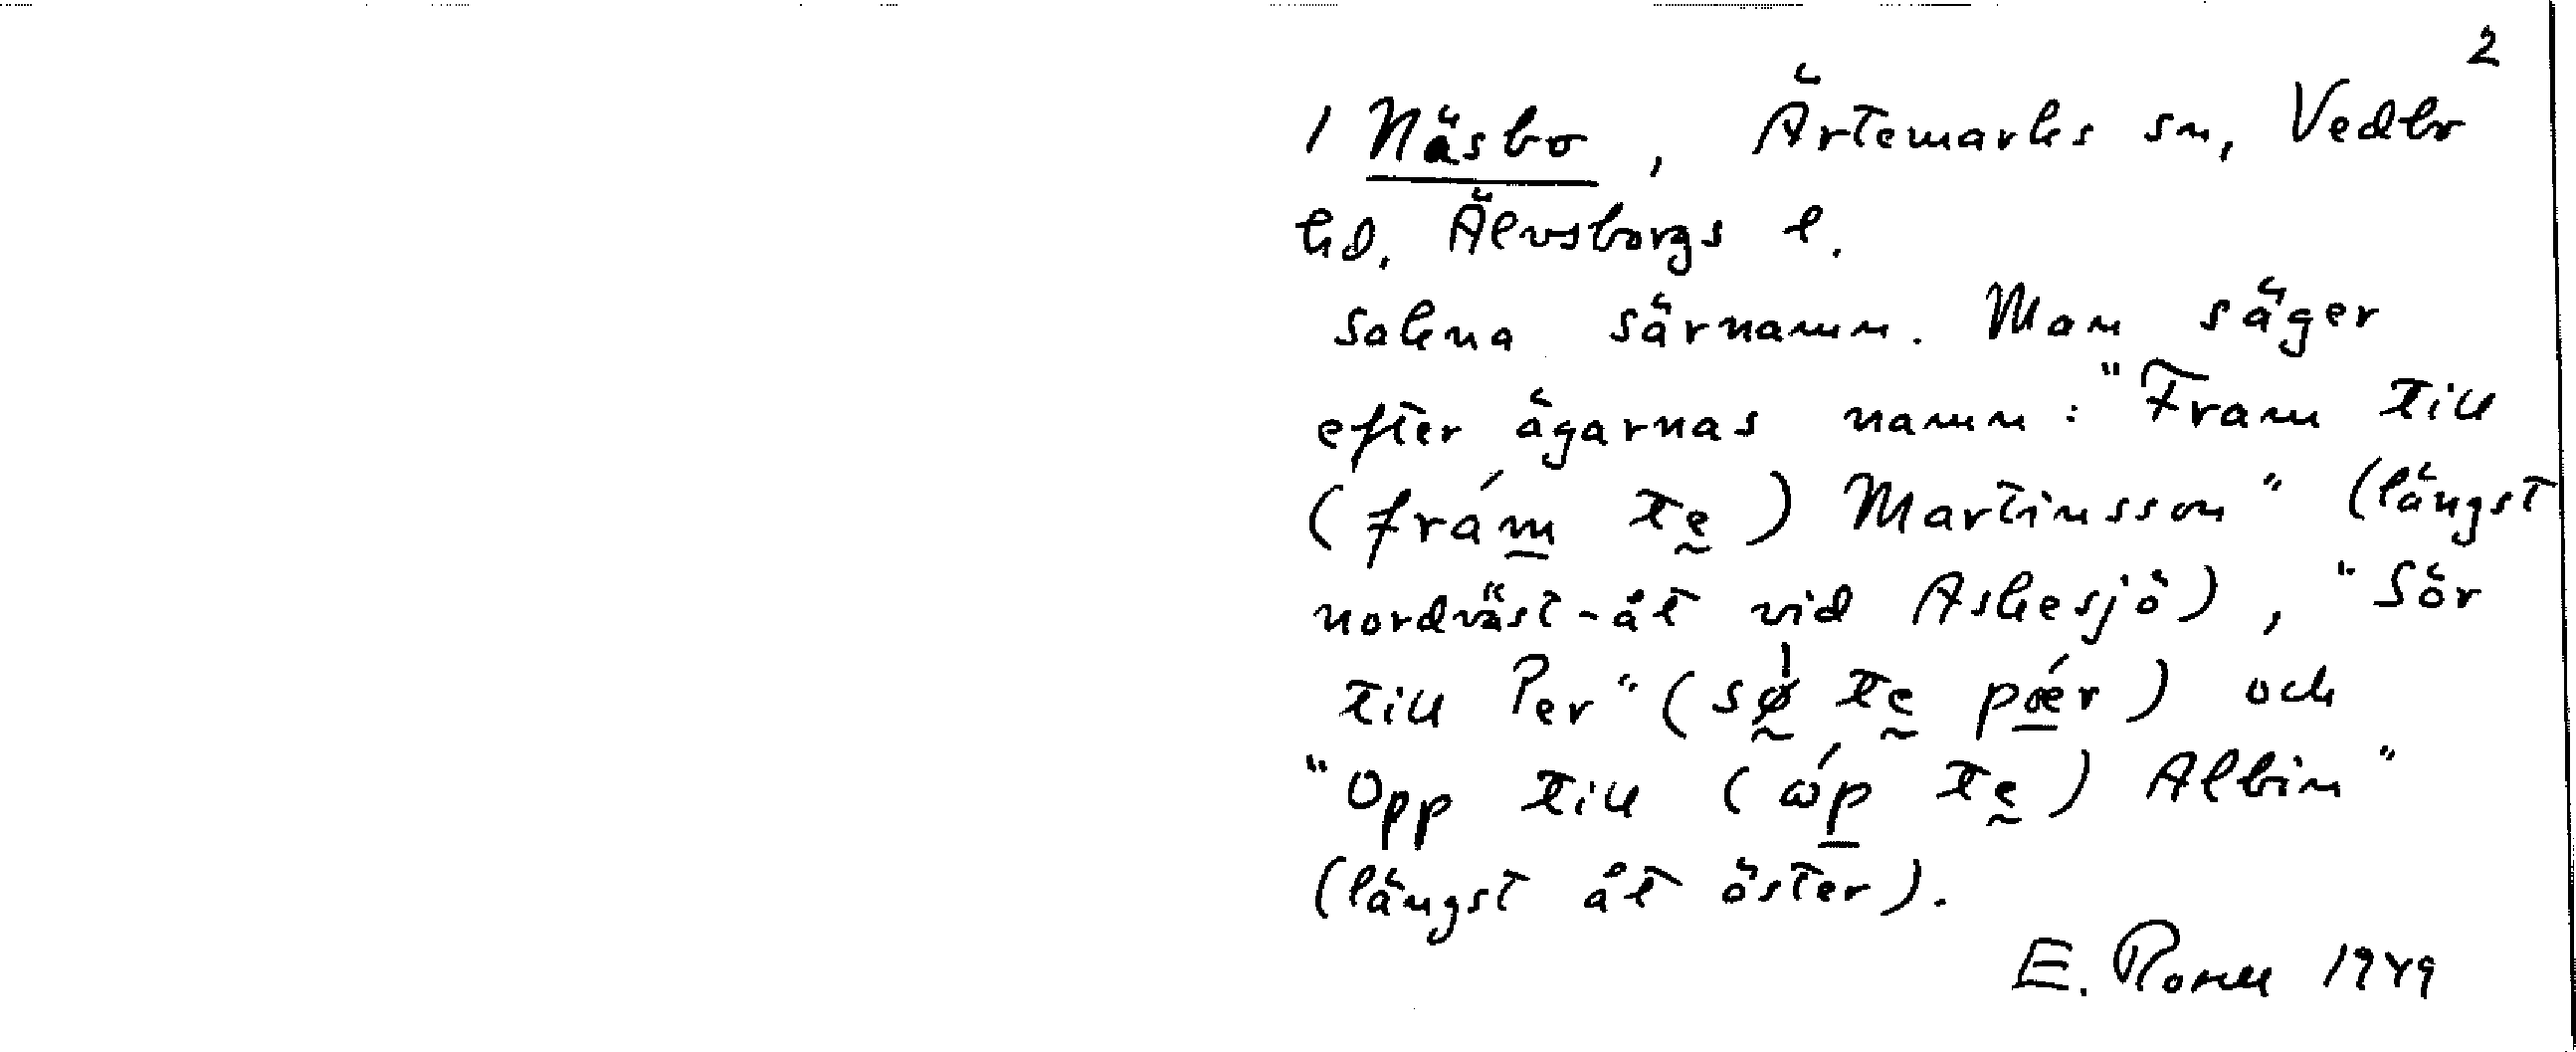 2
1 Näsbo, Ärtemarks sn, Vedbo
hd. Älvsborgs l.
sakna särnamn. Man säger
efter ägarnas namn: "Fram till
(frám tḛ) Martinsson" (längst
nordväst-åt vid Askesjö), "Sör
till Per" (sø̰ tḛ pǽr) och
"Opp till (ώp tḛ) Albin"
(längst åt öster).
E. 1949